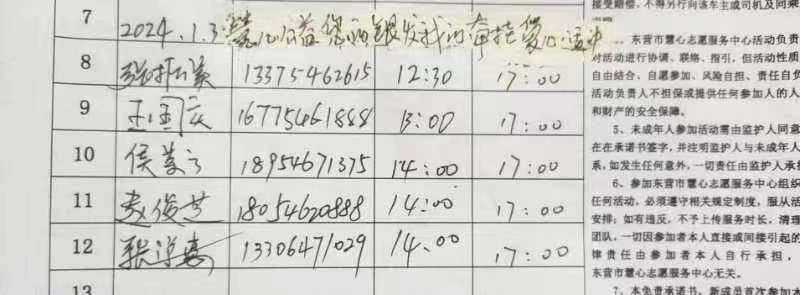 7
2024.1.3 慧心公益
8 13375462615 12:30 17:00
9 王国云 16775461888 13:00 17:00
10 侯 18954671375 14:00 17:00
11 赵俊芝 18054620888 14:00 17:00
12 张 13306471029 14.00 17:00
13
接受赔偿，不得另行向该车主或司机及同乘
、东营市慧心志愿服务中心活动负责
对活动进行协调、联络、指引，但活动性质
自由结合、自愿参加、风险自担、责任自负
活动负责人不担保或提供任何参加人的人
和财产的安全保障。
5、未成年人参加活动需由监护人同意
在在承诺书签字，并注明监护人与未成年人
系，如发生任何意外，一切责任由监护人承担
6、参加东营市慧心志愿服务中心组织
任何活动，必须遵守相关规定制度，服从活
安排；如有违反，不予上传服务时长，清理
团队，一切因参加者本人直接或间接引起的
律责任由参加者本人自行承担，
东营市慧心志愿服务中心无关。
7、本免责承诺书，新成员首次参加本